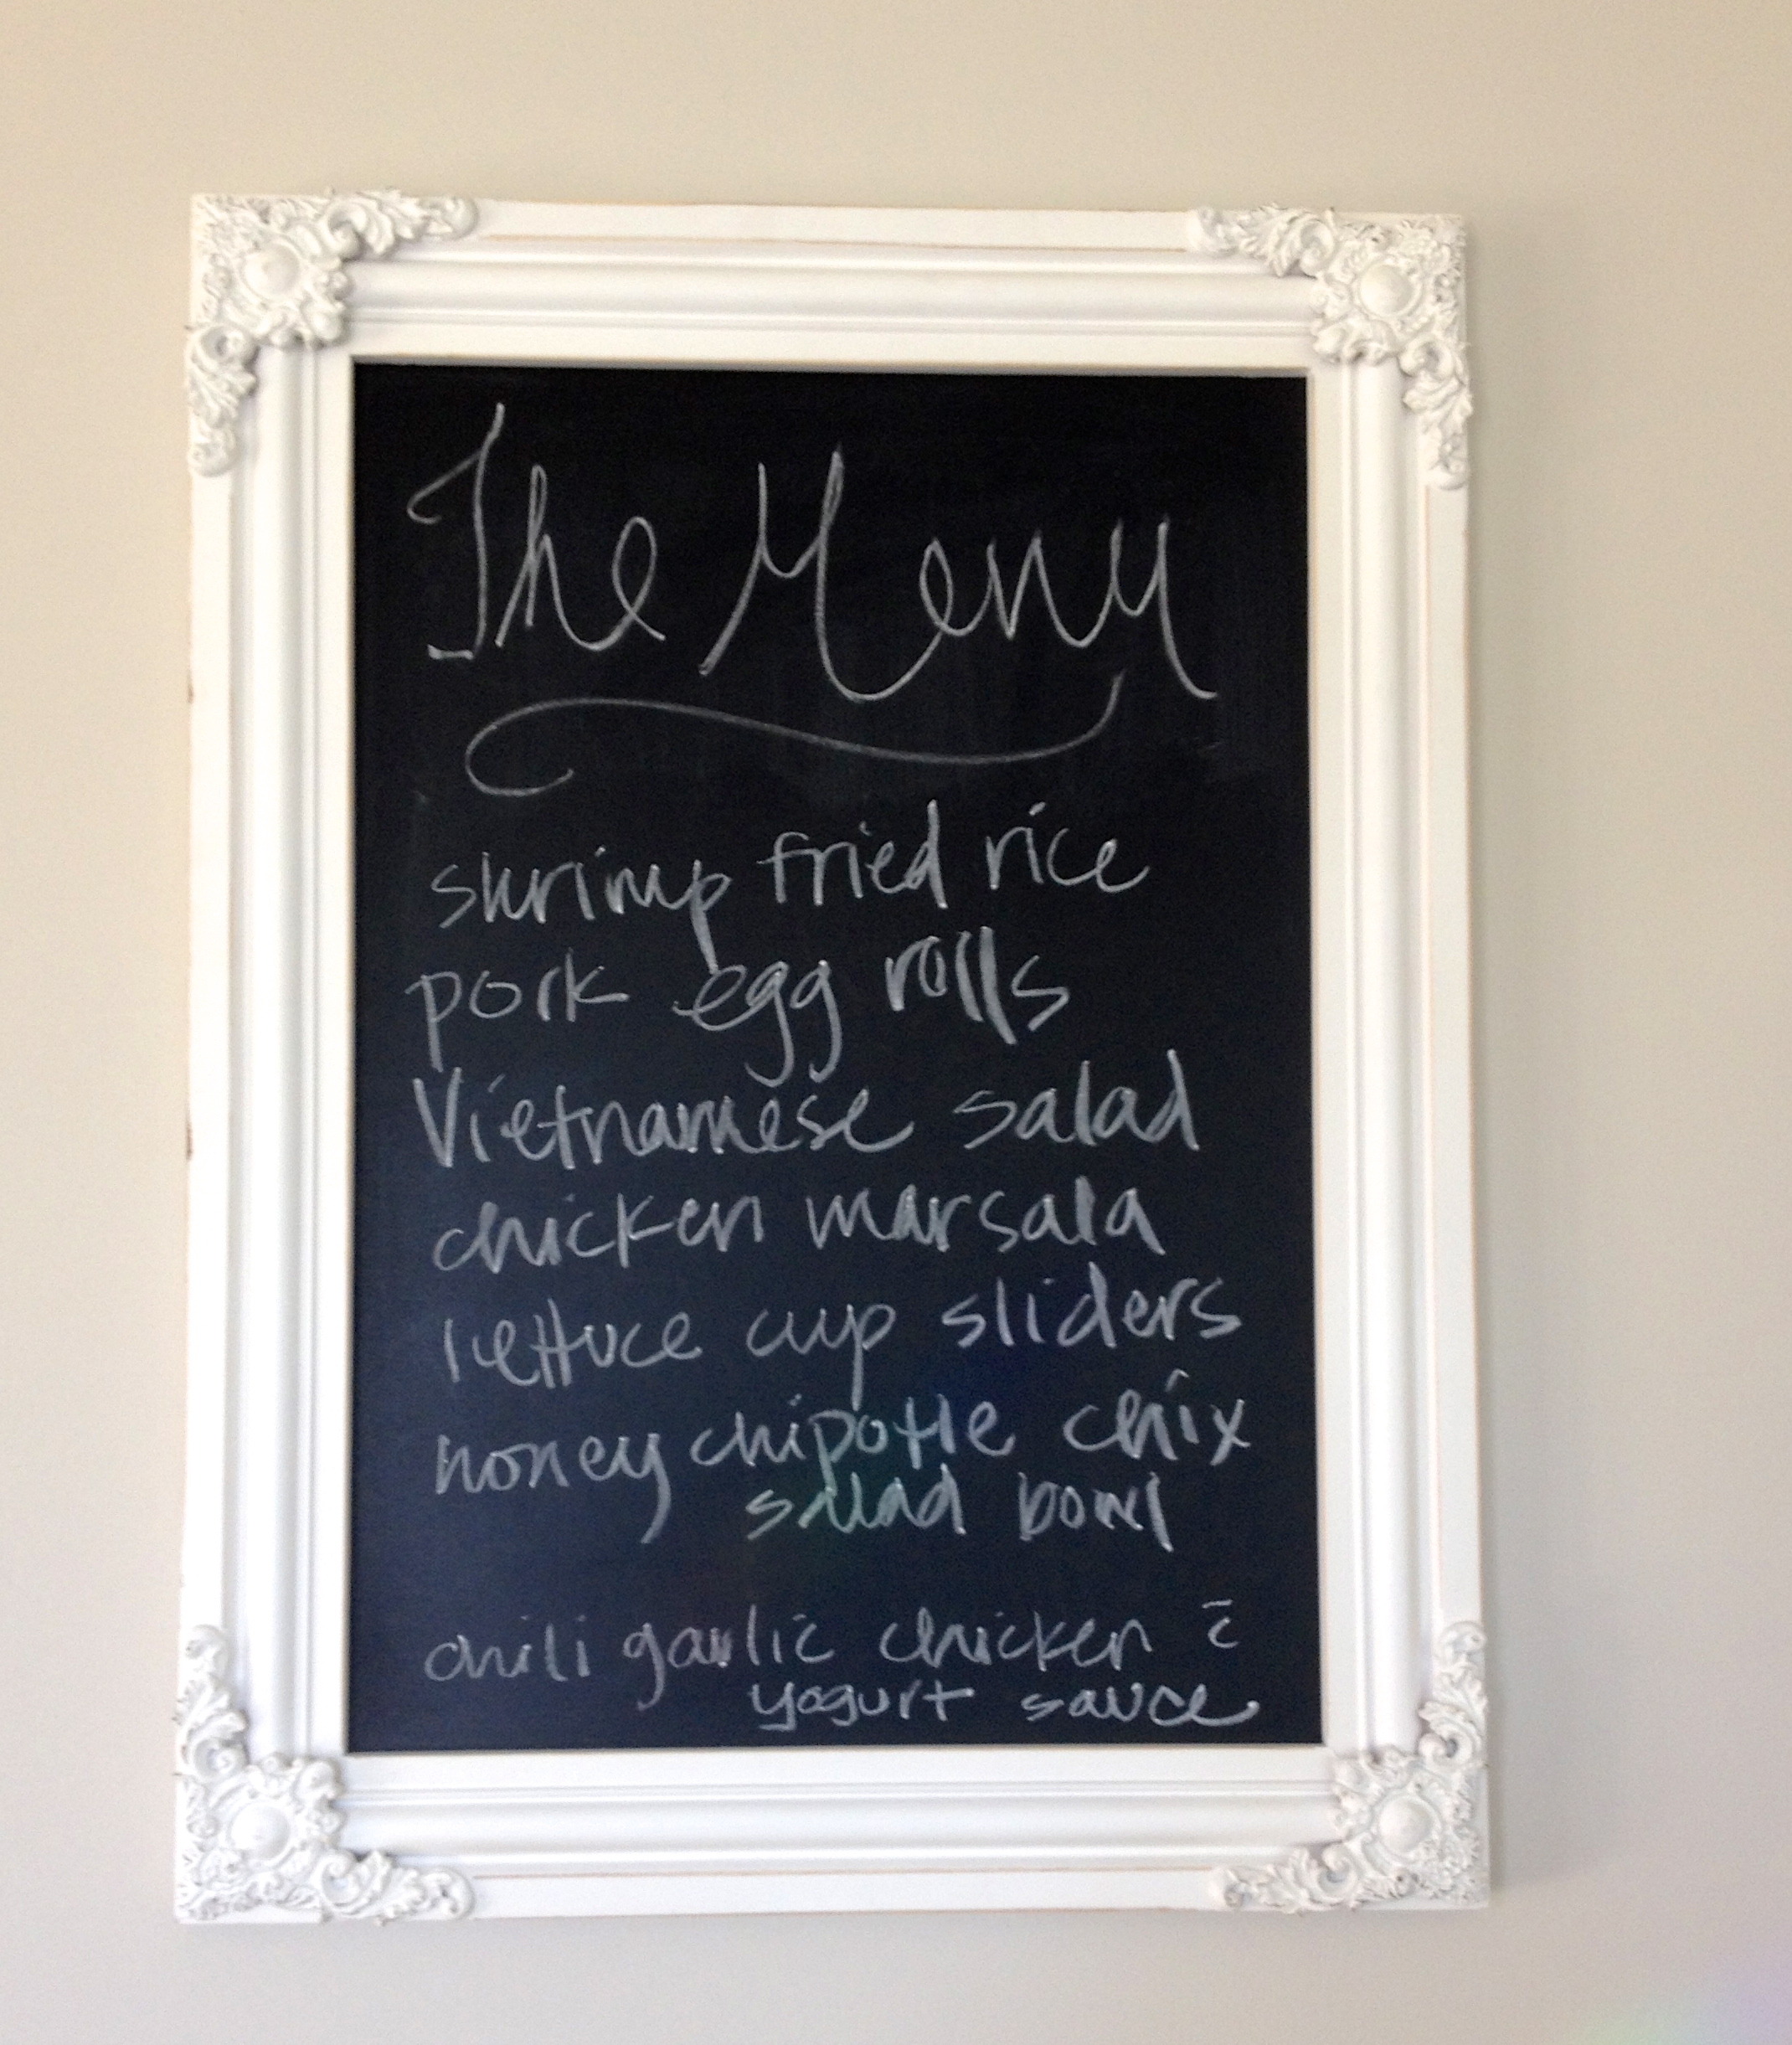 The Menu
shrimp fried rice
pork egg rolls
Vietnamese salad
chicken marsala
lettuce cup sliders
honey chipotle chix
salad bowl
chili garlic chicken c̄
yogurt sauce